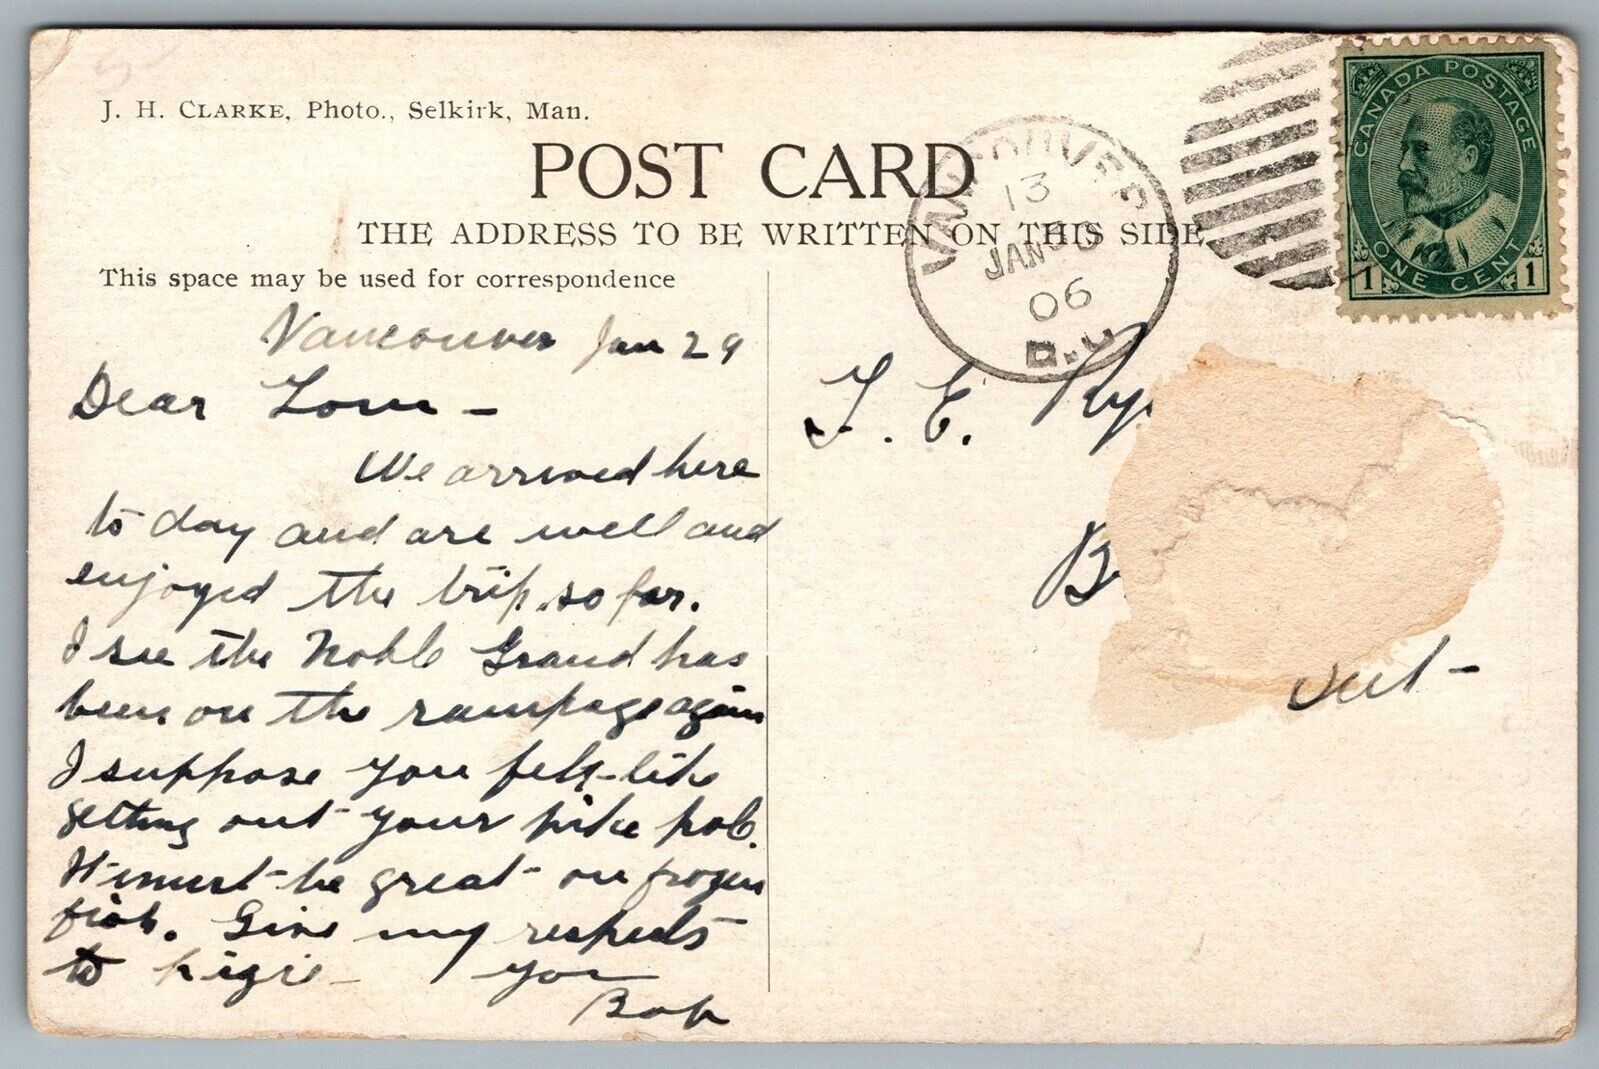 J. H. CLARKE, Photo., Selkirk, Man.
POST CARD
THE ADDRESS TO BE WRITTEN ON THIS SIDE
This space may be used for correspondence
CANADA POSTAGE
1 ONE CENT 1
VANCOUVER
13
JAN 30
06
B.C.
Vancouver Jan 29
Dear Tom -
We arrived here
to day and are well and
enjoyed the trip so far.
I see the Noble Grand has
been on the rampage again
I suppose you felt like
getting out your pike pole.
It must be great on frozen
fish. Give my respects
to
Bob
T. E.
B
Ont-